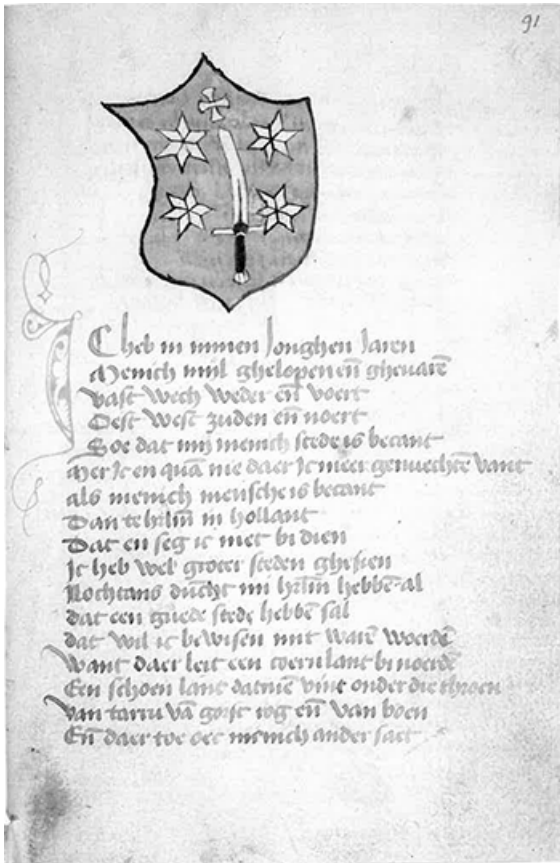 91
IC heb in minen Jonghen Jaren
Menich mijl ghelopen en̄ gheuarē
vast wech weder en̄ voert
Oest west zuden en̄ noert
Soe dat mij menich stede is becant
Mer Ic en quā nie daer Ic meer genuechtē vant
als menich mensche is becant
Dan te hrlm̄ in hollant
Dat en seg ic niet bi dien
Ic heb wel groter steden ghesien
Nochtans dūcht mi hrlm̄ hebbē al
dat een guede stede hebbē sal
dat wil ic bewisen mit warē woerdē
Want daer leit een coernlant bi noerdē
Een schoen lant datmē vint onder die throen
van tarru vā gorst rog en̄ van boen
En̄ daer toe oec menich ander saet